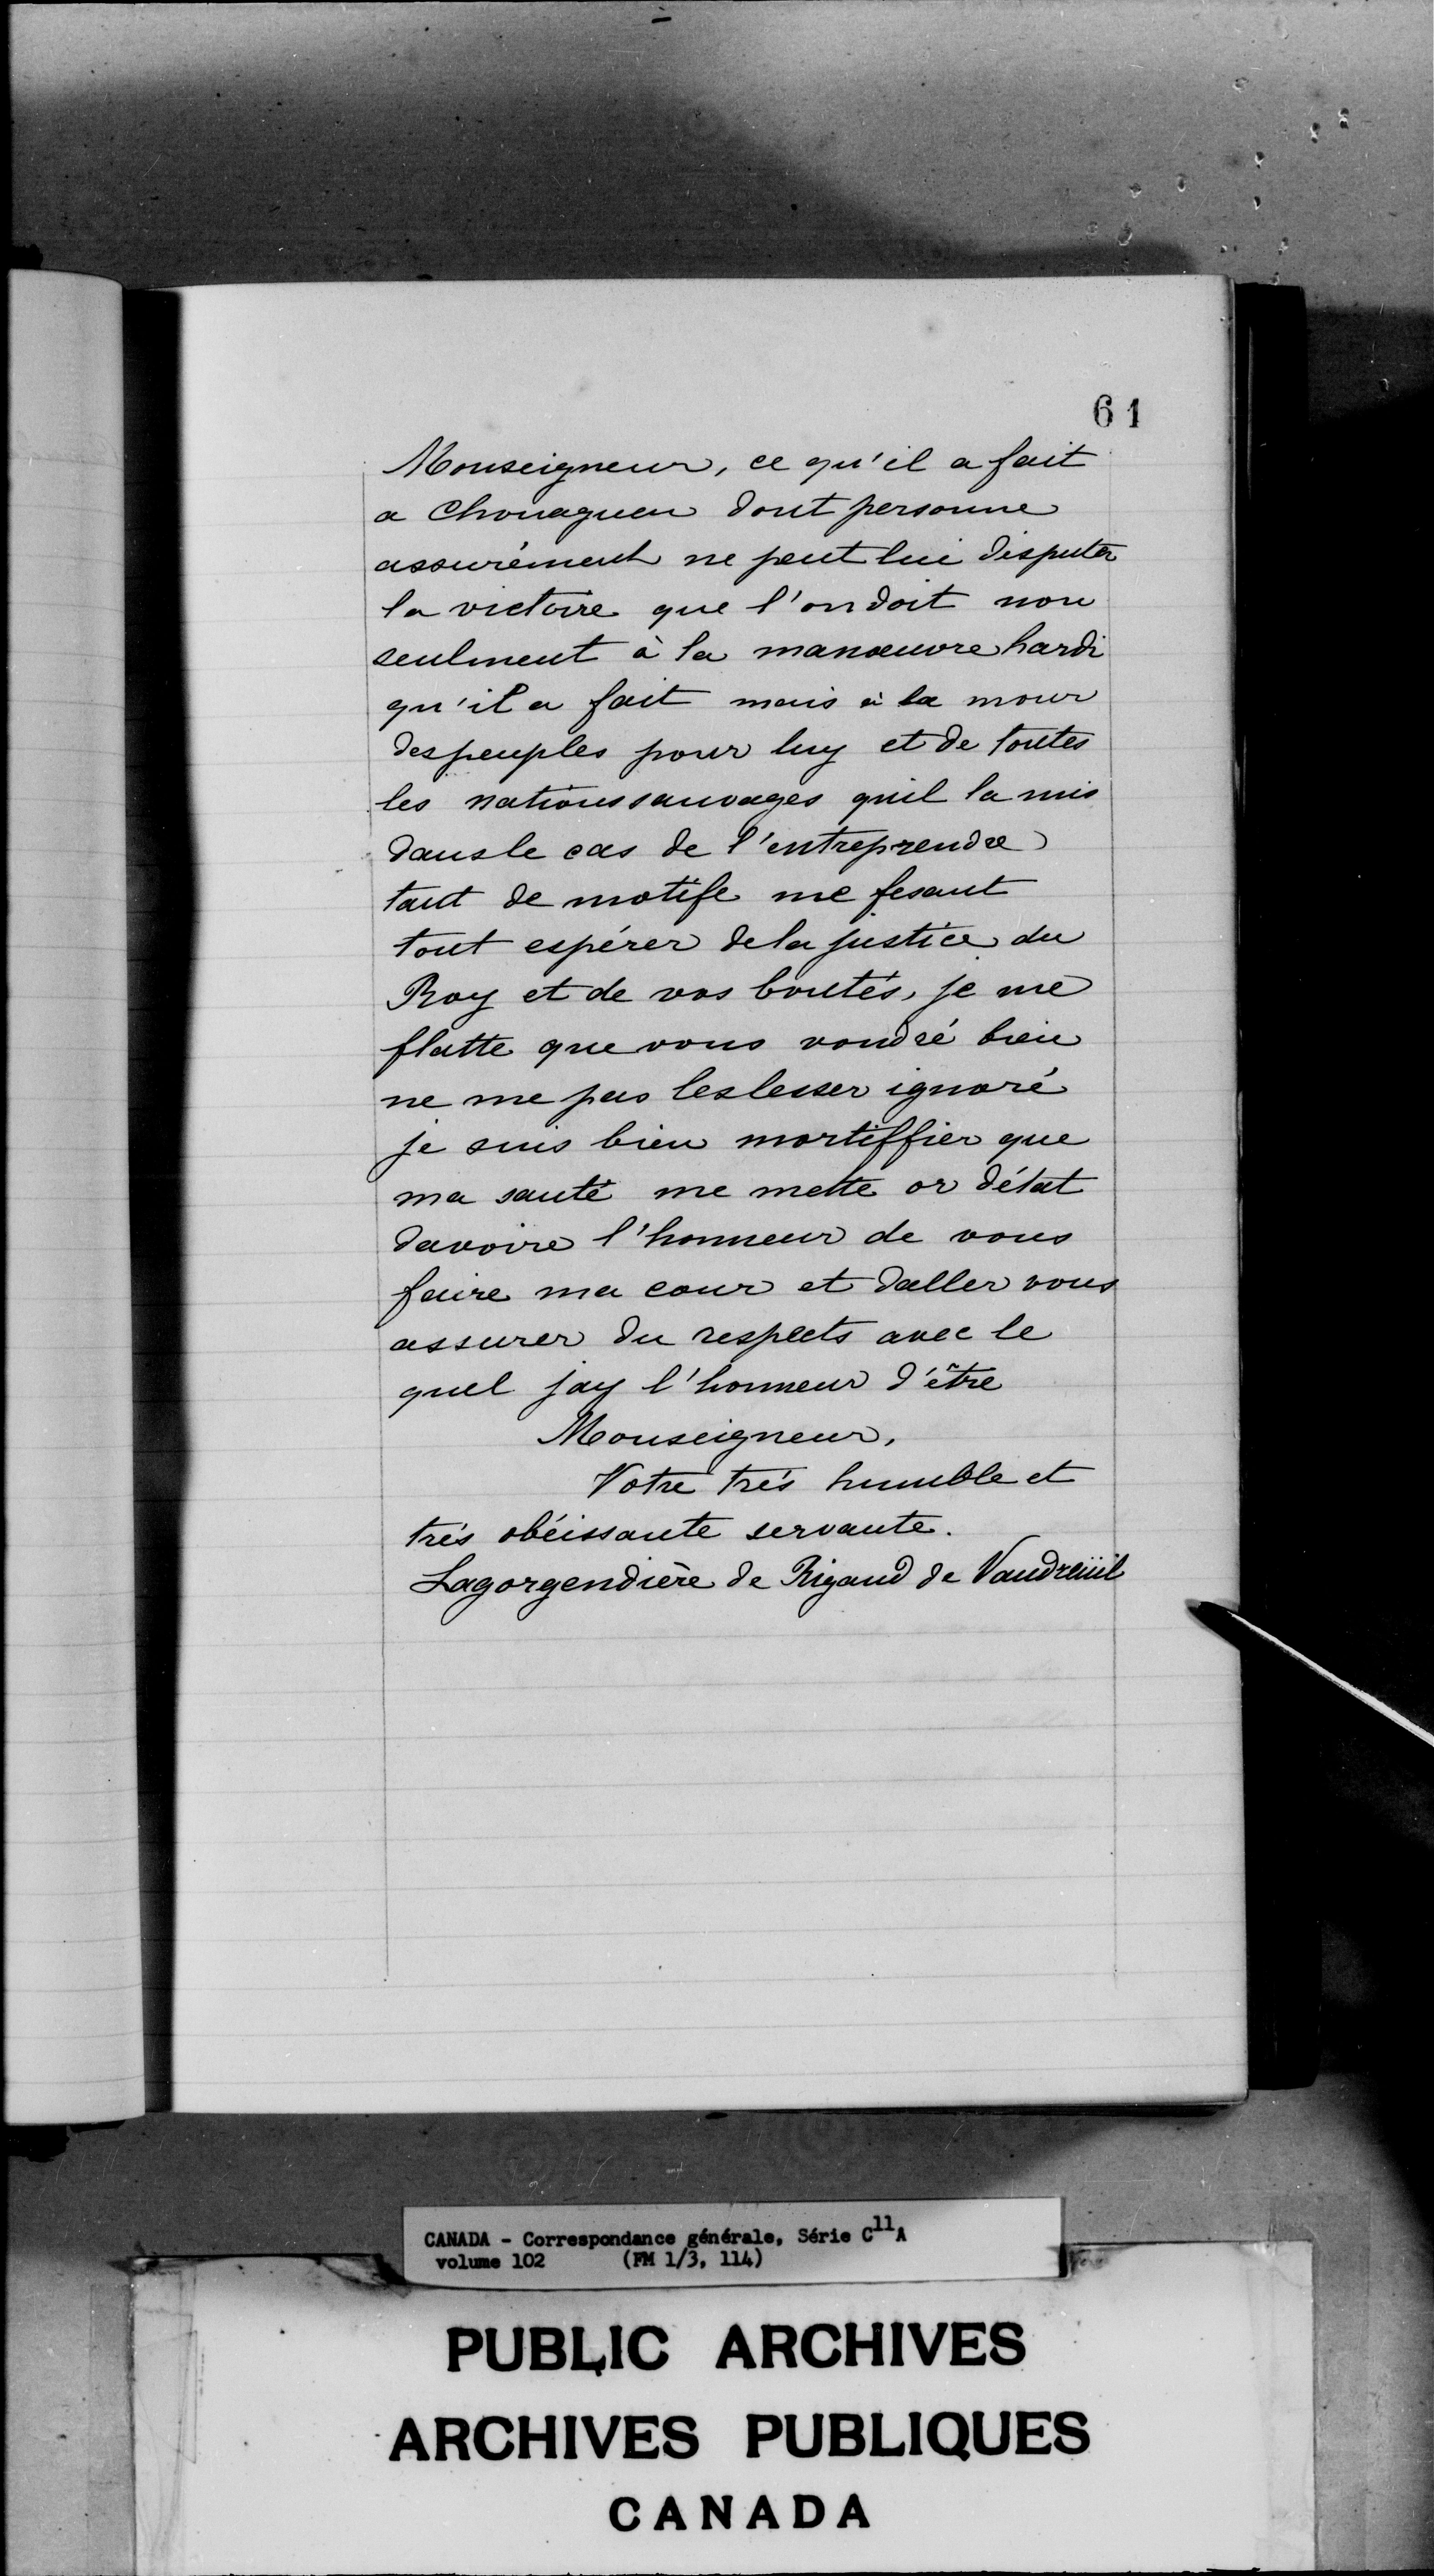 61
Monseigneur, ce qu'il a fait
a Chouaguen dont personne
assurément ne peut lui disputer
la victoire que l'on doit non
seulment à la manœuvre hardi
qu'il a fait mais à la mour
des peuples pour luy et de toutes
les nations sauvages quil la mis
dans le cas de l'entreprendre
tant de motife me fesant
tout espérer de la justice du
Roy et de vos bontés, je me
flatte que vous voudré bien
ne me pas les lesser ignoré
je suis bien mortiffier que
ma santé me mette or d'état
davoire l'honneur de vous
faire ma cour et daller vous
assurer du respects avec le
quel jay l'honneur d'être
Monseigneur,
Votre très humble et
très obéissante servante.
Lagorgendière de Rigaud de Vaudreüil
CANADA - Correspondance générale, Série C11A
volume 102 (FM 1/3, 114)
PUBLIC ARCHIVES
ARCHIVES PUBLIQUES
CANADA